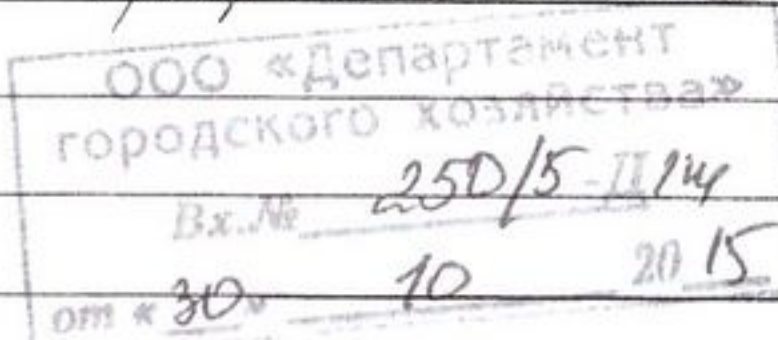 ООО «Департамент
городского хозяйства»
Вх.№ 250/5-Д
от «30» 10 2015